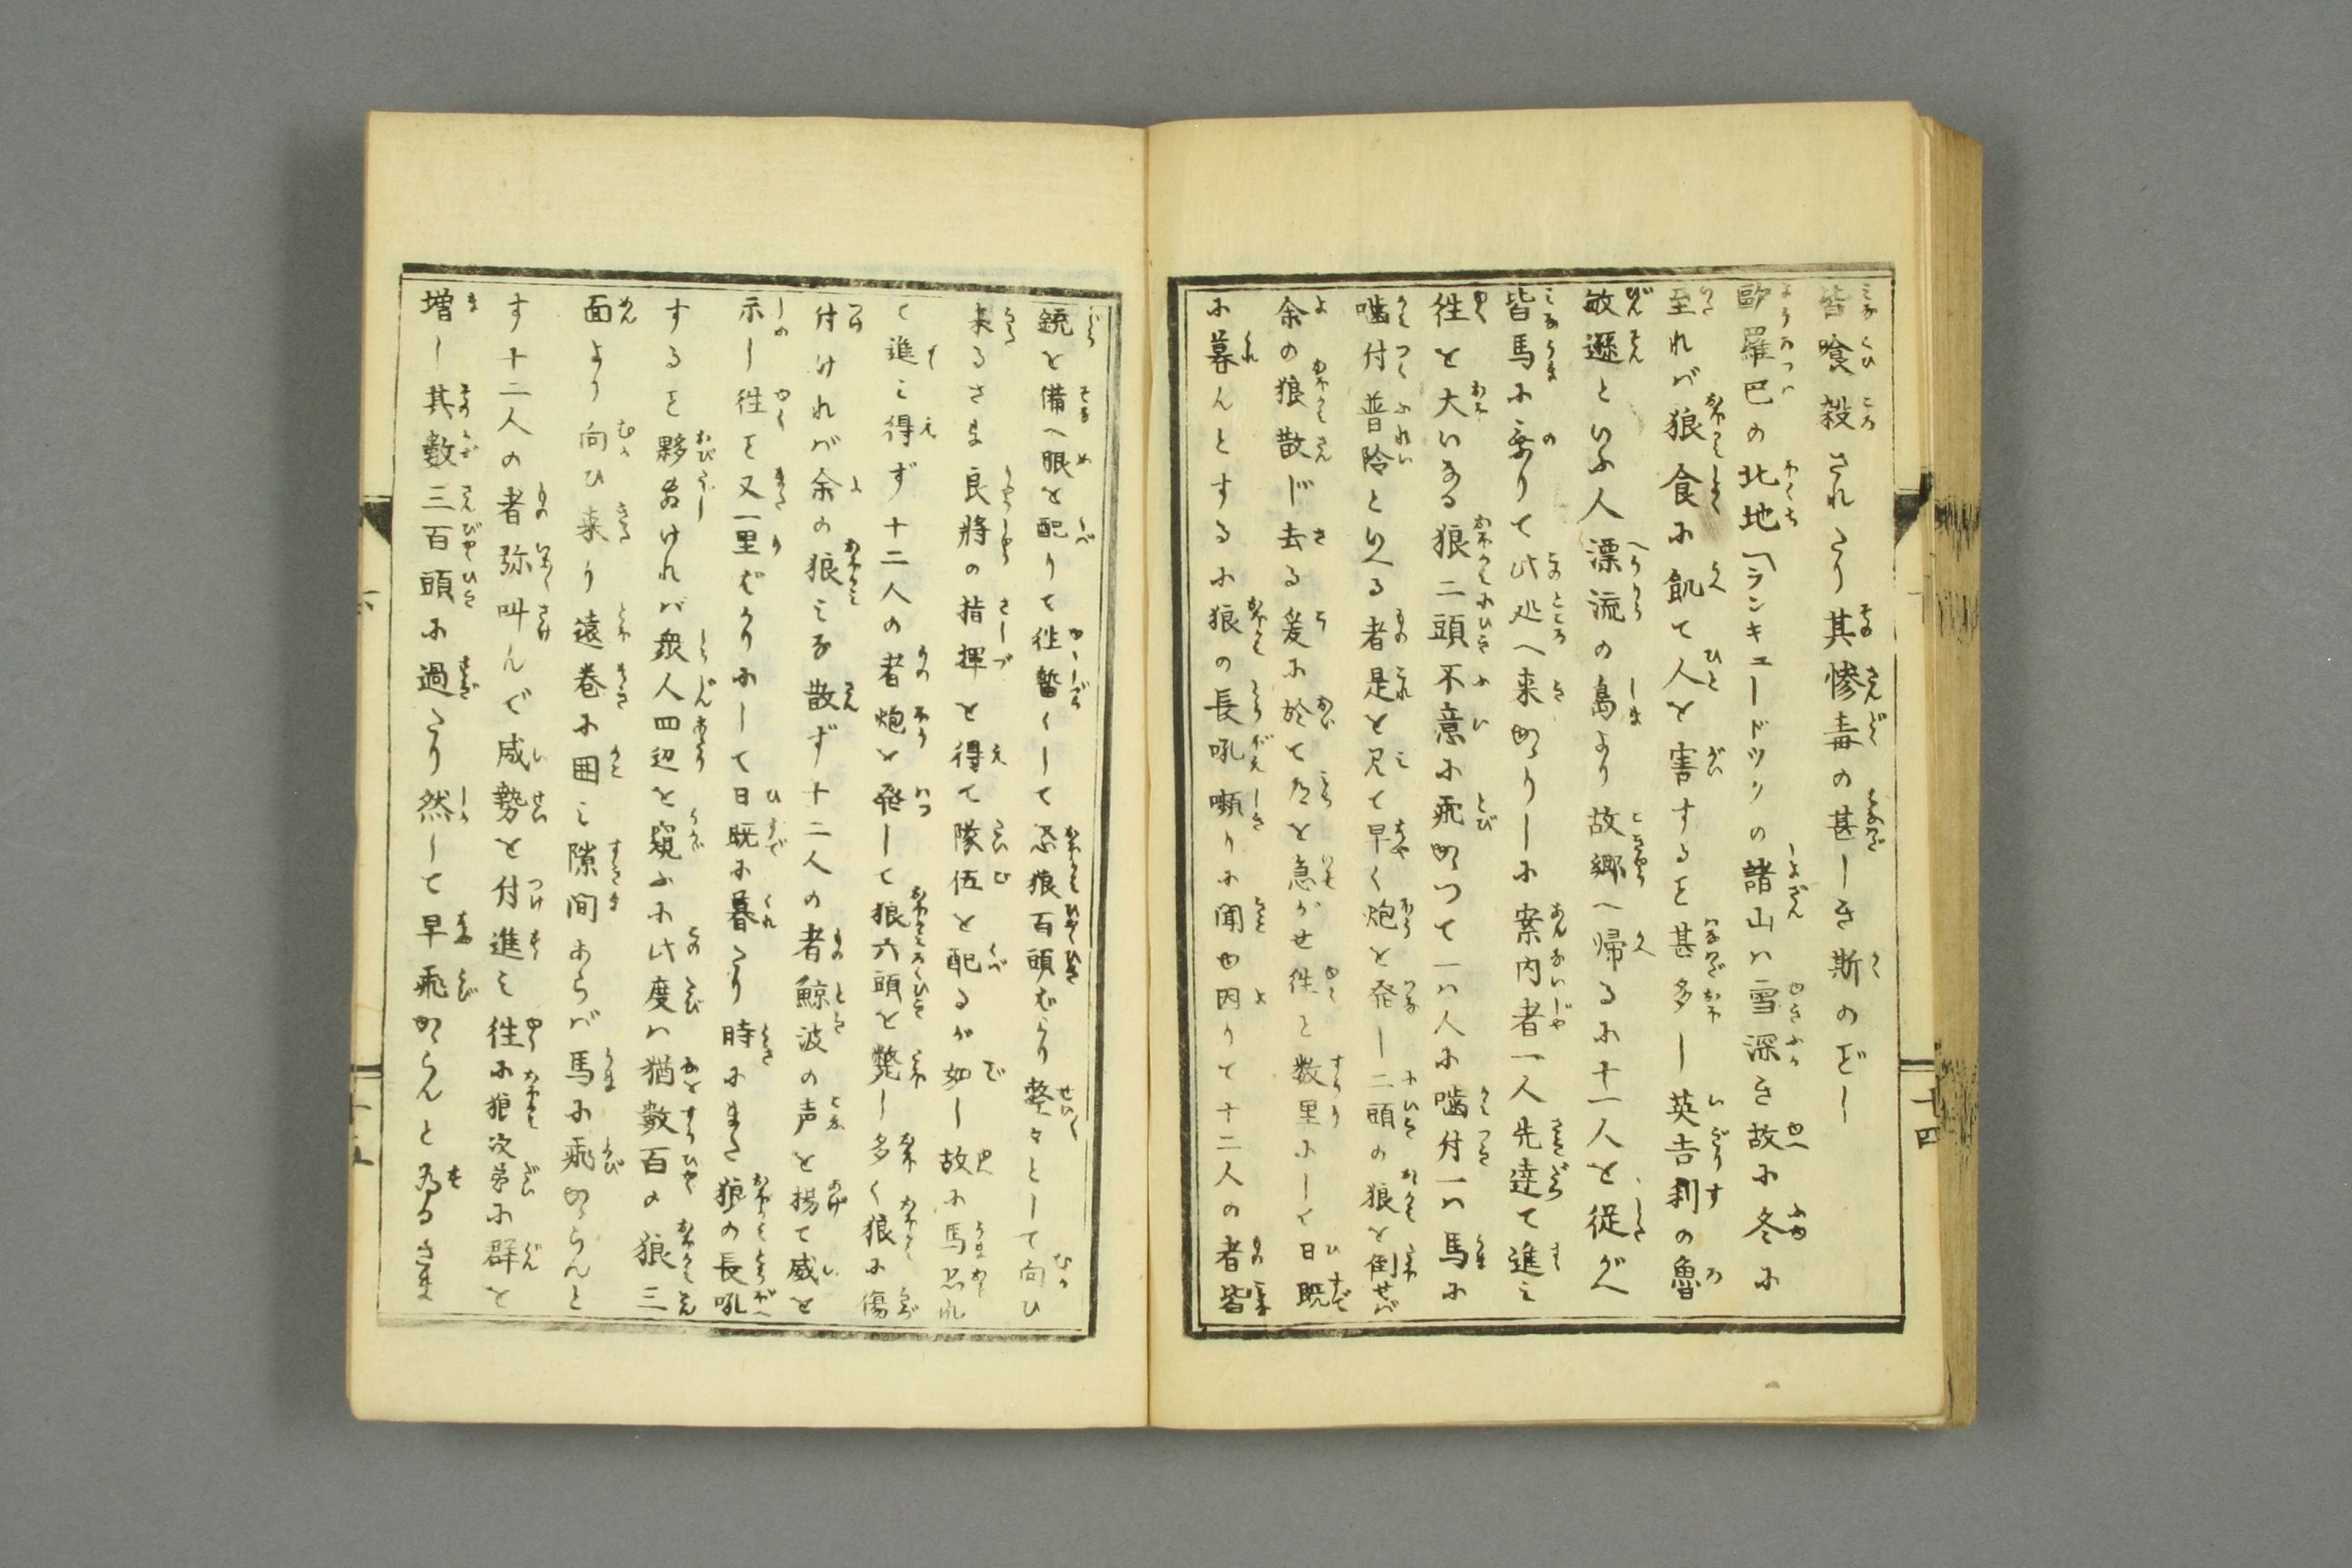 皆喰殺されたり其惨毒の甚しき斯のごとし
歐羅巴の北地「ランキュードツクの諸山ハ雪深き故に冬に
至れバ狼食に飢て人を害すると甚多し英吉利の魯
敏遜といふ人漂流の島より故郷へ帰るに十一人を従がへ
皆馬に乗りて此処へ来かゝりしに案内者一人先達て進み
往と大いなる狼二頭不意に飛かゝつて一ハ人に噛付一ハ馬に
噛付普陰といへる者是を見て早く炮を発し二頭の狼を倒せば
余の狼散じ去る爰に於て道を急がせ往と数里にして日既
に暮んとするに狼の長吼頻りに聞ゆ因りて十二人の者皆
銃を備へ眼を配りて往暫くして忽狼百頭ばかり整々として向ひ
来るさま良將の指揮を得て隊伍を配るが如し故に馬恐れ
て進み得ず十二人の者炮を発して狼六頭を斃し多く狼に傷
付けれバ余の狼みな散ず十二人の者鯨波の声を揚て威を
示し往と又一里ばかりにして日既に暮たり時にまた狼の長吼
すると夥しけれバ衆人四辺を窺ふに此度ハ猶數百の狼三
面より向ひ来り遠巻に囲み隙間あらバ馬に飛かゝらんと
す十二人の者弥叫んで威勢を付進み往に狼次第に群を
増し其數三百頭に過たり然して早飛かゝらんと為るさま
十四
十五